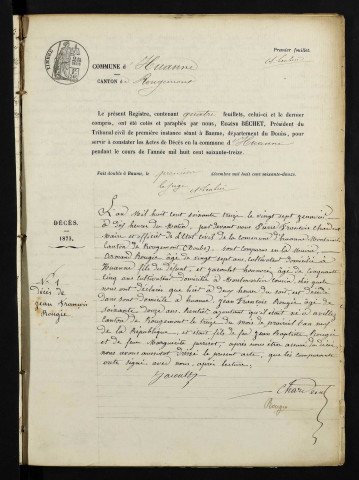 Premier feuillet.
TIMBRE
COMMUNE d Huanne
CANTON d Rougemont
Le présent Registre, contenant quatre feuillets, celui-ci et le dernier
compris, ont été cotés et paraphés par nous, Enaim BECHET, Président du
Tribunal civil de première instance séant à Baume, département du Doubs, pour
servir à constater les Actes de Décès en la commune d Huanne
pendant le cours de l'année mil huit cent soixante-treize.
Fait double à Baume, le premier décembre mil huit cent soixante-douze.
le juge
DÉCÈS.
1873.
N° 1
Décès de
Jean François
Rougie
L'an Mil huit cent soixante treize le vingt sept janvier
à dix heures du Matin, par devant nous Pierre François
Maire et officier de l'Etat civil de la commune d'huanne Montmartin
Canton de Rougemont (Doubs) sont comparus en la Maison
Rougie âgé de vingt sept ans cultivateur domicilié à
huanne fils du défunt, et âgé de cinquante
cinq ans cultivateur domicilié à Montmartin lesquels
nous ont déclaré que hier à deux heures du soir, est décédé
dans son domicile à huanne, Jean François Rougie âgé de
soixante douze ans, ajoutant qu'il était né à avilley
canton de Rougemont le treize du mois de prairial l'an neuf
de la République et était fils de feu Jean Baptiste Rougie
et de feue Marguerite après nous être assuré du décès
nous avons aussitôt dressé le présent acte, que les comparants
ont signé avec nous, après lecture.
Rougie